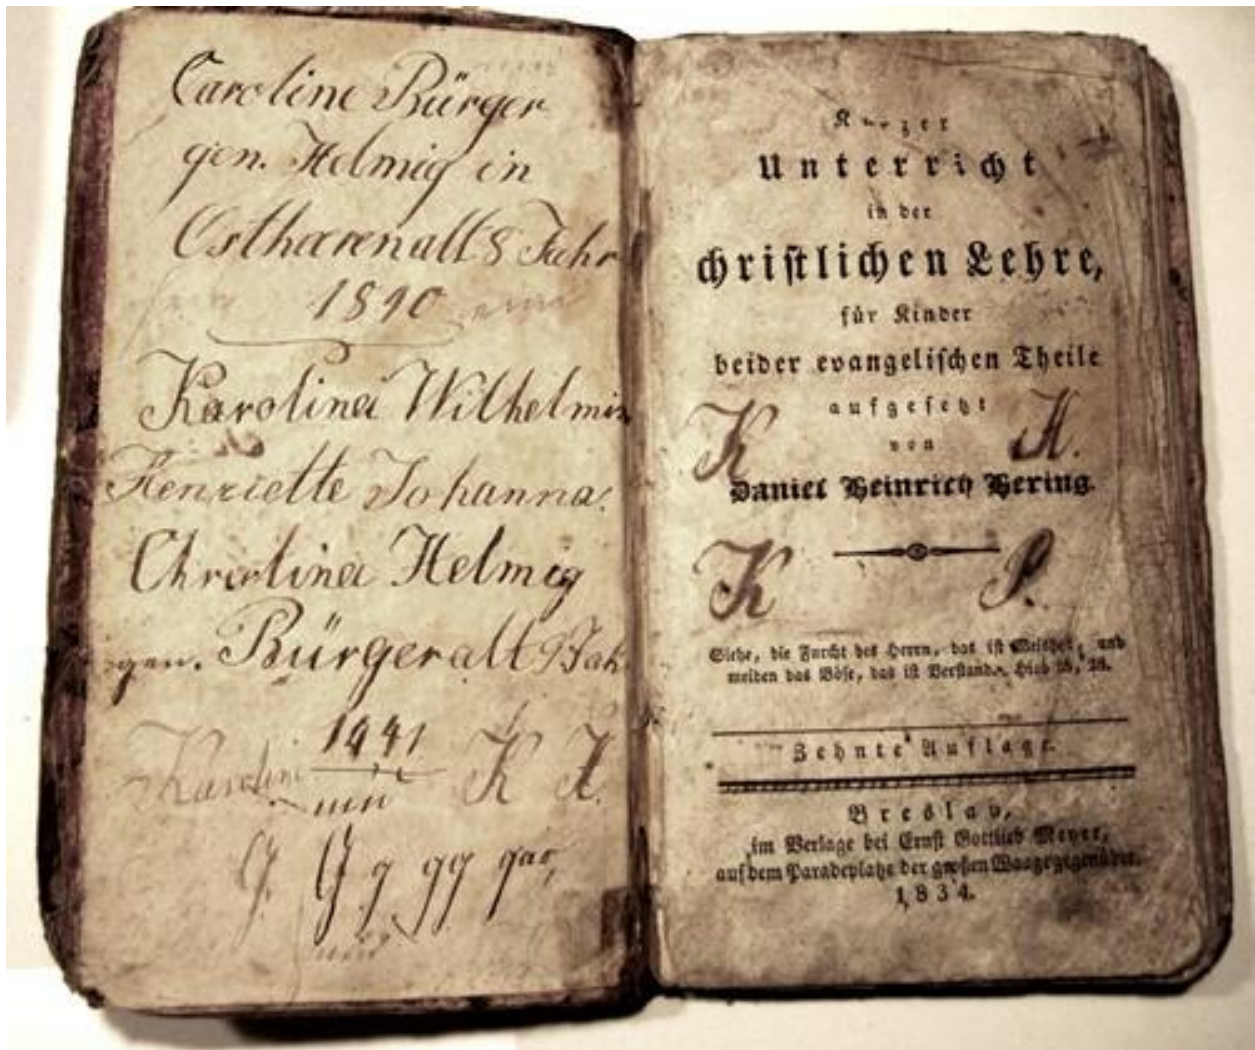 Caroline Bürger
gen. Helmig in
Ostharen alt 8 Jahr
1890
Karolina Wilhelmin
Henriette Johanna
Christina Helmig
gen. Bürger alt 9 Jah
Karolini
K
G. G g gg
Kurzer
Unterricht
in der
christlichen Lehre,
für Kinder
beider evangelischen Theile
aufgesetzt
von
K H.
Daniel Heinrich Hering.
K P.
Siehe, die Furcht des Herrn, das ist Weisheit, und
meiden das Böse, das ist Verstand. Hiob 28, 28.
Zehnte Auflage.
Breslau,
im Verlage bei Ernst Gottlieb Meyer,
auf dem Paradeplatze der großen Waage gegenüber.
1834.